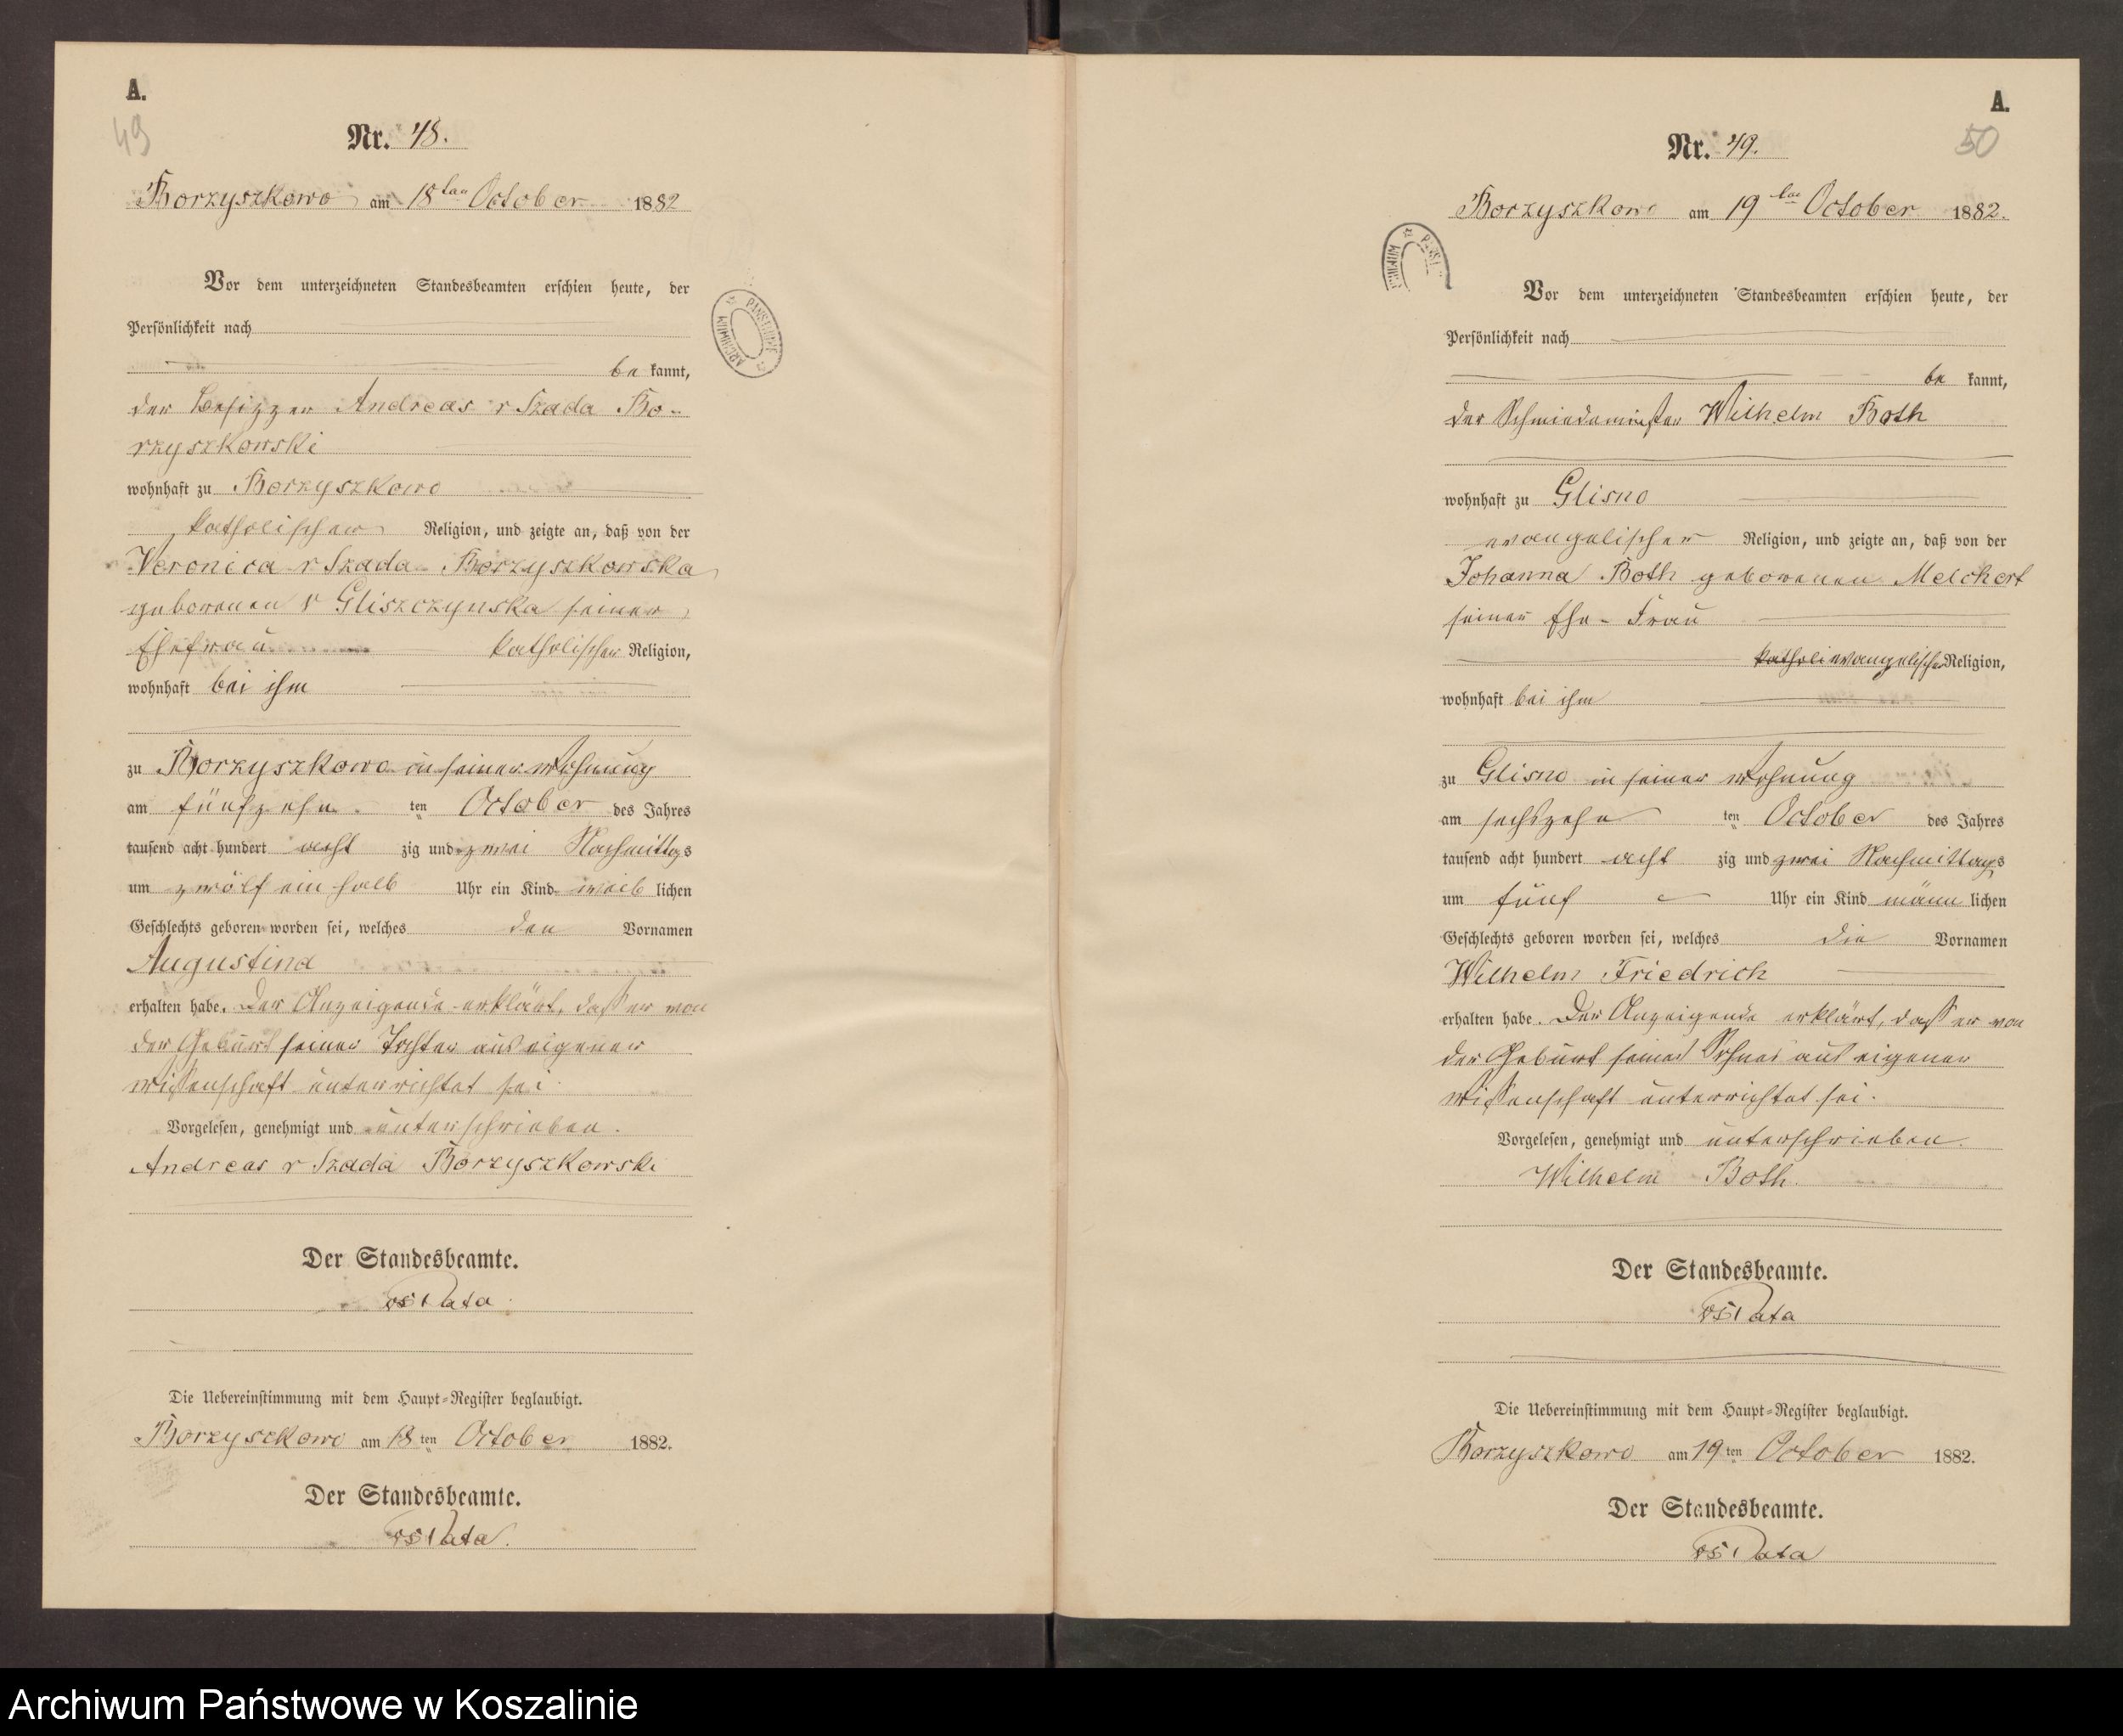 A.
49
Nr. 48.
Borzyszkowo am 18ten October 1882
Vor dem unterzeichneten Standesbeamten erschien heute, der
Persönlichkeit nach
be kannt,
der Besitzer Andreas v Szada Bo-
rzyszkowski
wohnhaft zu Borzyszkowo
katholischer Religion, und zeigte an, daß von der
Veronica v Szada Borzyszkowska
geborenen v Gliszczynska seiner
Ehefrau katholischer Religion,
wohnhaft bei ihm
zu Borzyszkowo in seiner Wohnung
am fünfzehn ten October des Jahres
tausend acht hundert acht zig und zwei Nachmittags
um zwölf ein halb Uhr ein Kind weib lichen
Geschlechts geboren worden sei, welches den Vornamen
Augustina
erhalten habe. Der Anzeigende erklärt, daß er von
der Geburt seiner Tochter aus eigener
Wissenschaft unterrichtet sei.
Vorgelesen, genehmigt und unterschrieben.
Andreas v Szada Borzyszkowski
Der Standesbeamte.
Die Uebereinstimmung mit dem Haupt-Register beglaubigt.
Borzyszkowo am 18ten October 1882.
Der Standesbeamte.
A.
50
Nr. 49.
Borzyszkowo am 19ten October 1882.
Vor dem unterzeichneten Standesbeamten erschien heute, der
Persönlichkeit nach
be kannt,
der Schmiedemeister Wilhelm Both
wohnhaft zu Glisno
evangelischer Religion, und zeigte an, daß von der
Johanna Both geborenen Melchert
seiner Ehe-Frau
katholi evangelischer Religion,
wohnhaft bei ihm
zu Glisno in seiner Wohnung
am sechszehn ten October des Jahres
tausend acht hundert acht zig und zwei Nachmittags
um fünf Uhr ein Kind männ lichen
Geschlechts geboren worden sei, welches die Vornamen
Wilhelm Friedrich
erhalten habe. Der Anzeigende erklärt, daß er von
der Geburt seines Sohnes aus eigener
Wissenschaft unterrichtet sei.
Vorgelesen, genehmigt und unterschrieben.
Wilhelm Both.
Der Standesbeamte.
Die Uebereinstimmung mit dem Haupt-Register beglaubigt.
Borzyszkowo am 19ten October 1882.
Der Standesbeamte.
Archiwum Państwowe w Koszalinie